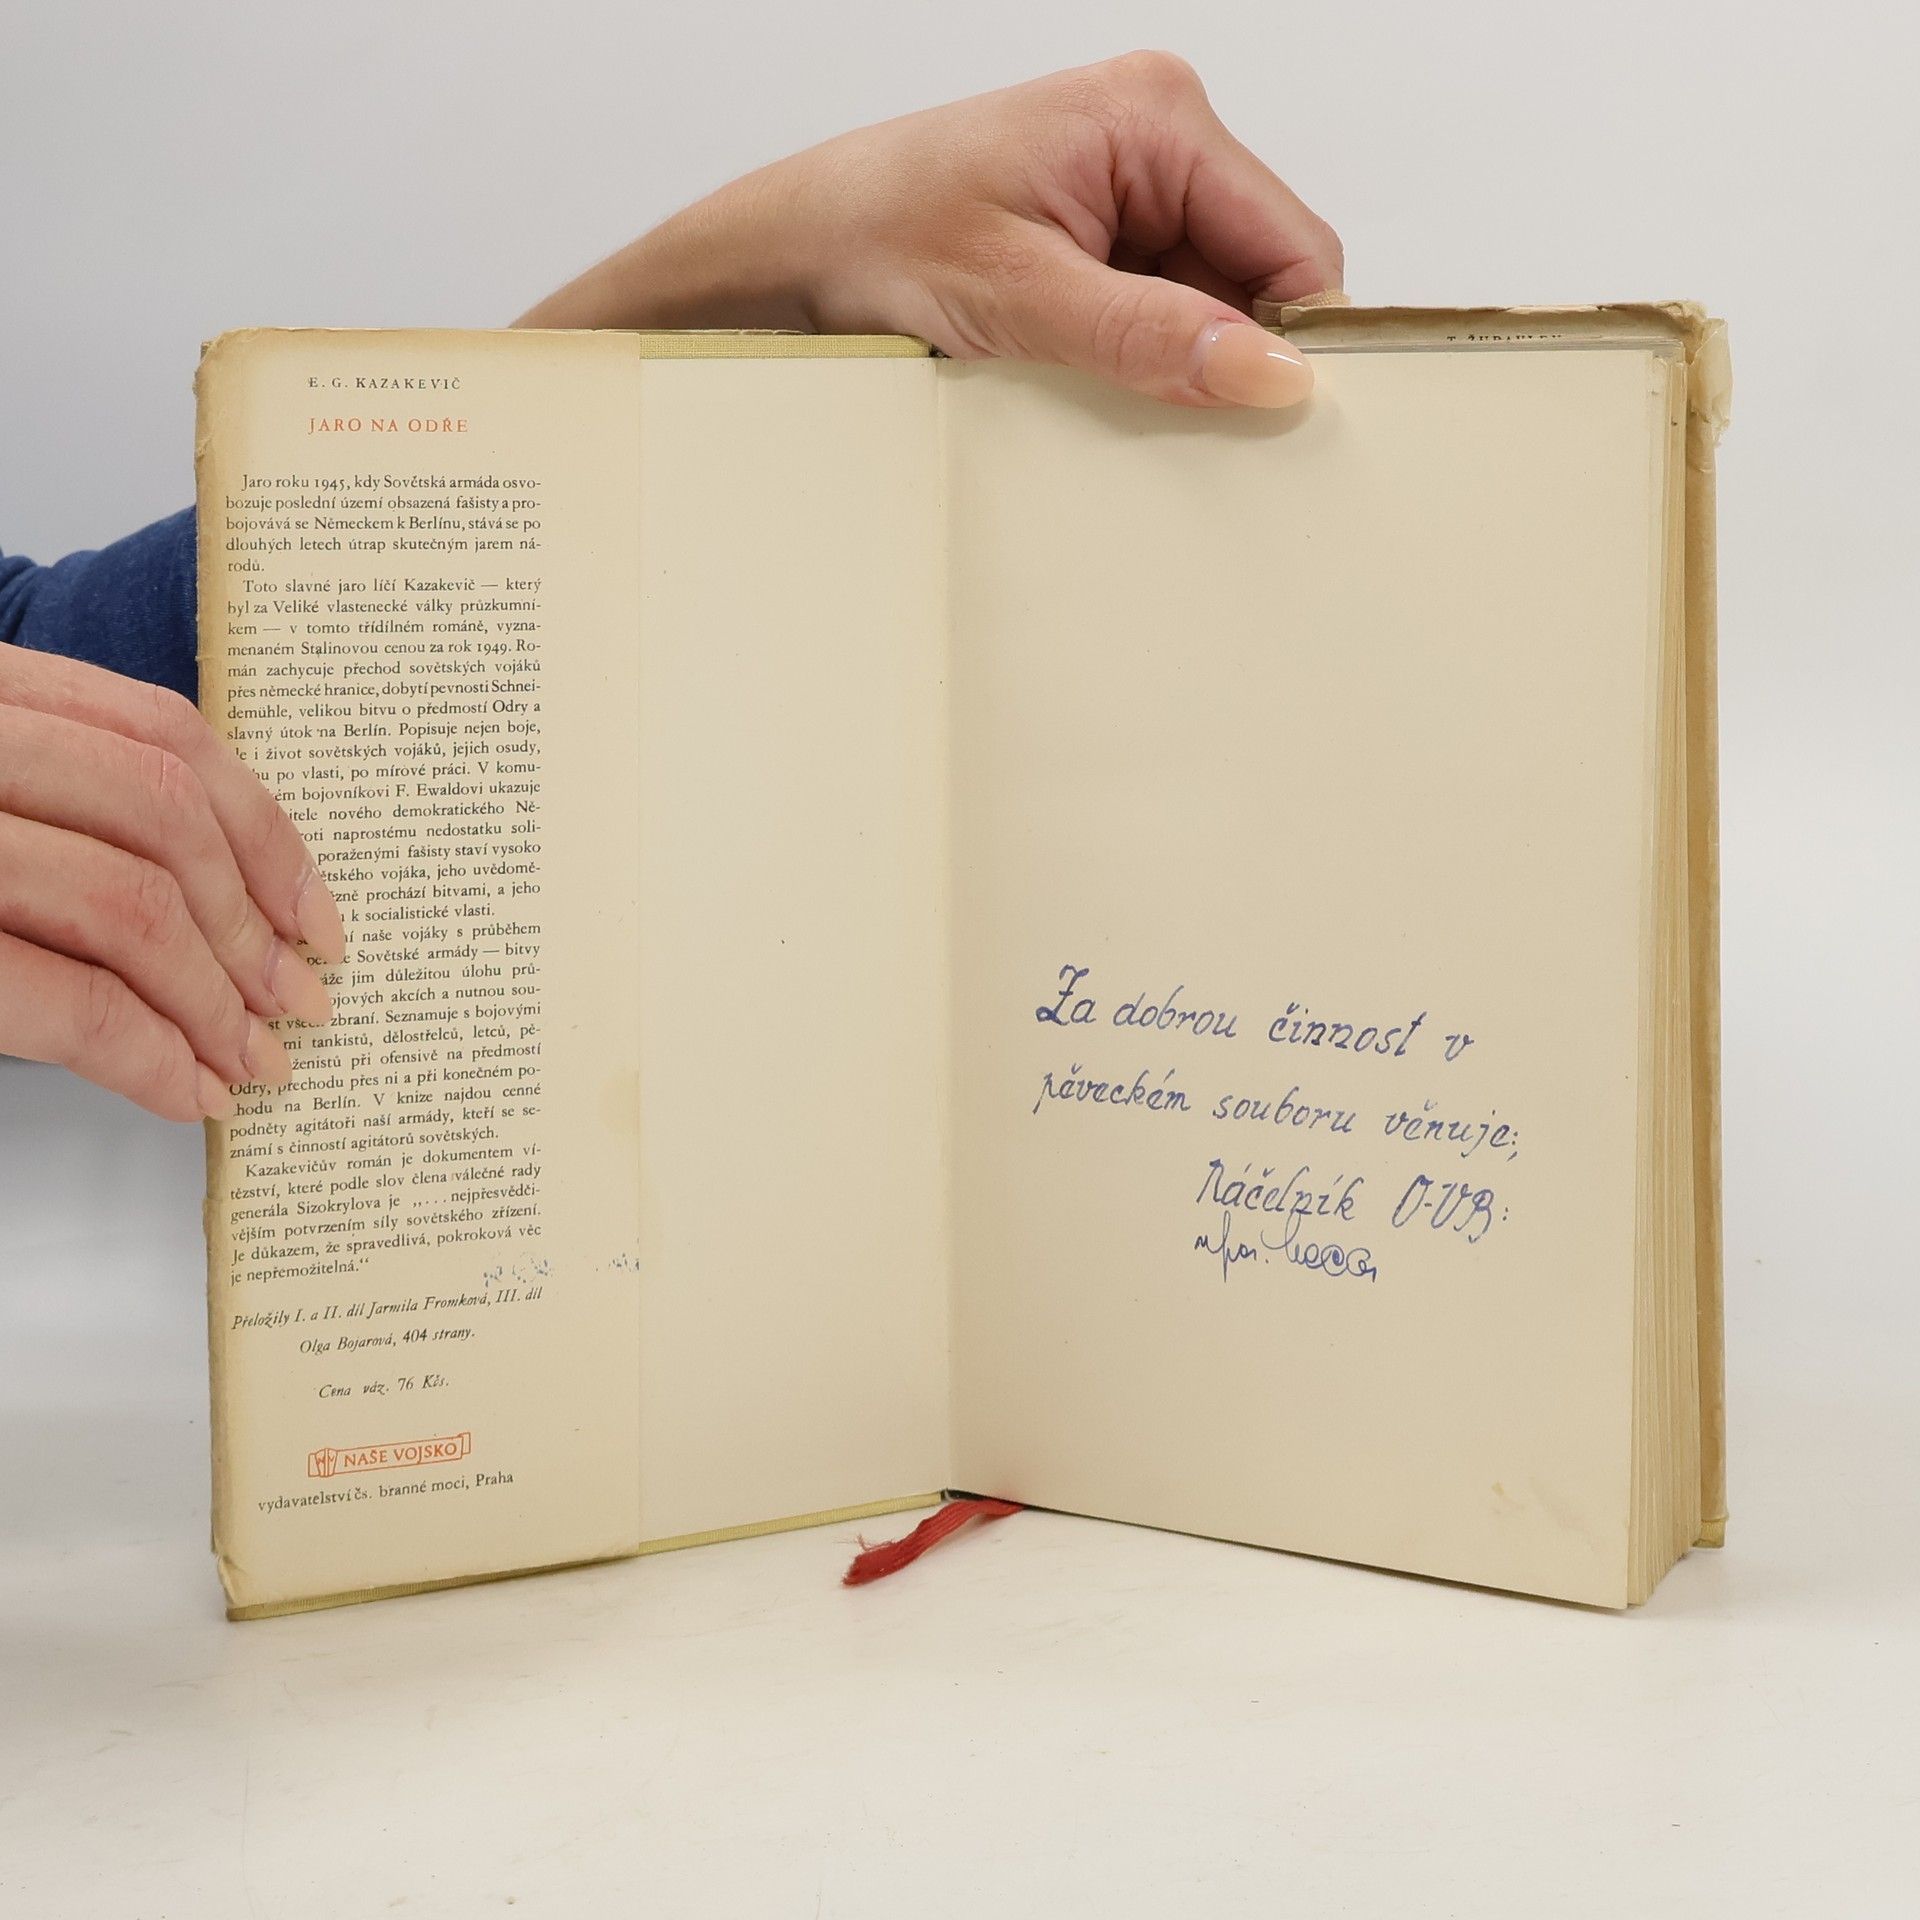 E. G. KAZAKEVIČ
JARO NA ODŘE
Jaro roku 1945, kdy Sovětská armáda osvo-
bozuje poslední území obsazená fašisty a pro-
bojovává se Německem k Berlínu, stává se po
dlouhých letech útrap skutečným jarem ná-
rodů.
Toto slavné jaro líčí Kazakevič — který
byl za Veliké vlastenecké války průzkumní-
kem — v tomto třídílném románě, vyzna-
menaném Stalinovou cenou za rok 1949. Ro-
mán zachycuje přechod sovětských vojáků
přes německé hranice, dobytí pevnosti Schnei-
demühle, velikou bitvu o předmostí Odry a
slavný útok na Berlín. Popisuje nejen boje,
i život sovětských vojáků, jejich osudy,
po vlasti, po mírové práci. V komu-
bojovníkovi F. Ewaldovi ukazuje
nového demokratického Ně-
naprostému nedostatku soli-
poraženými fašisty staví vysoko
jeho uvědomě-
prochází bitvami, a jeho
k socialistické vlasti.
naše vojáky s průběhem
Sovětské armády — bitvy
jim důležitou úlohu prů-
akcích a nutnou sou-
zbraní. Seznamuje s bojovými
tankistů, dělostřelců, letců, pě-
při ofensivě na předmostí
Odry, přechodu přes ni a při konečném po-
chodu na Berlín. V knize najdou cenné
podněty agitátoři naší armády, kteří se se-
známí s činností agitátorů sovětských.
Kazakevičův román je dokumentem ví-
tězství, které podle slov člena válečné rady
generála Sizokrylova je „... nejpřesvědči-
vějším potvrzením síly sovětského zřízení.
Je důkazem, že spravedlivá, pokroková věc
je nepřemožitelná.“
Přeložily I. a II. díl Jarmila Fromková, III. díl
Olga Bojarová, 404 strany.
Cena váz. 76 Kčs.
NAŠE VOJSKO
vydavatelství čs. branné moci, Praha
Za dobrou činnost v
pěveckém souboru věnuje:
Náčelník